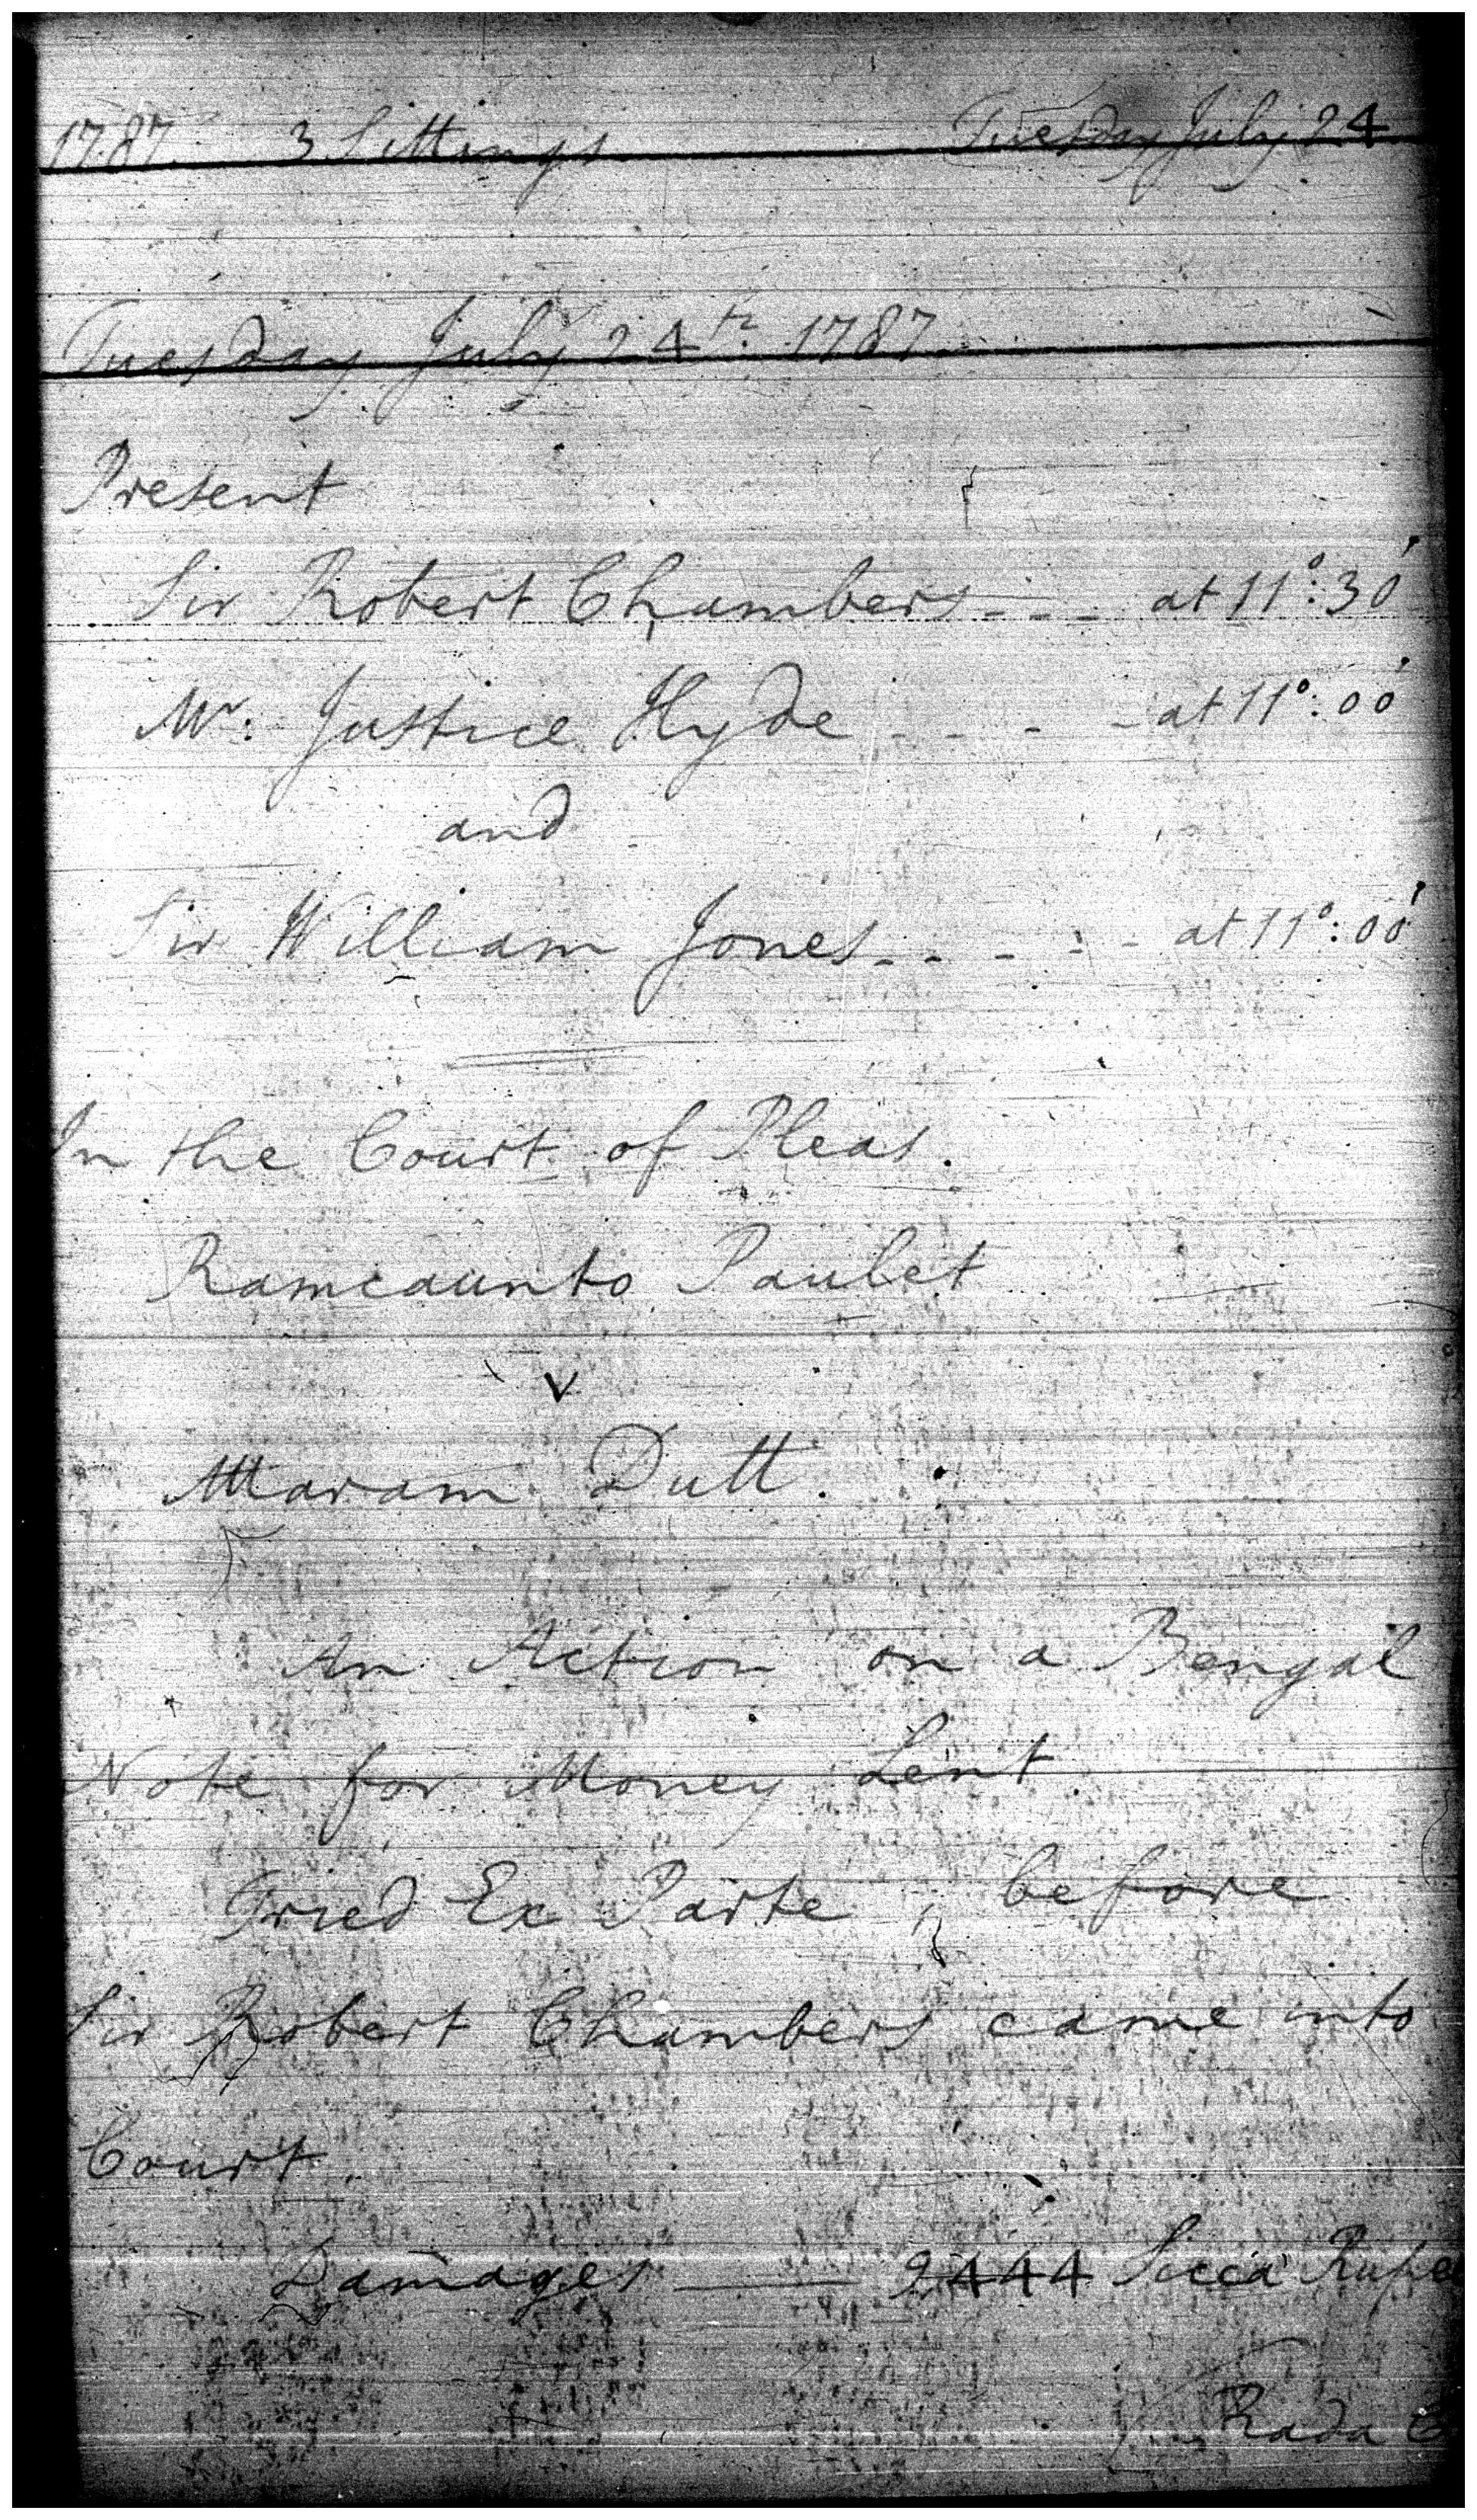 1787. 3 Sittings Tuesday July 24
Tuesday July 24th. 1787.
Present
Sir Robert Chambers - - - at 11°: 30'
Mr. Justice Hyde - - - - at 11°: 00'
and
Sir William Jones - - - - - at 11°: 00'
In the Court of Pleas.
Ramcaunto Paulet
v
Maram Dutt.
An Action on a Bengal
Note for Money Lent.
Tried Ex Parte, before
Sir Robert Chambers came into
Court.
Damages —— 2444 Sicca Rupee
Rada